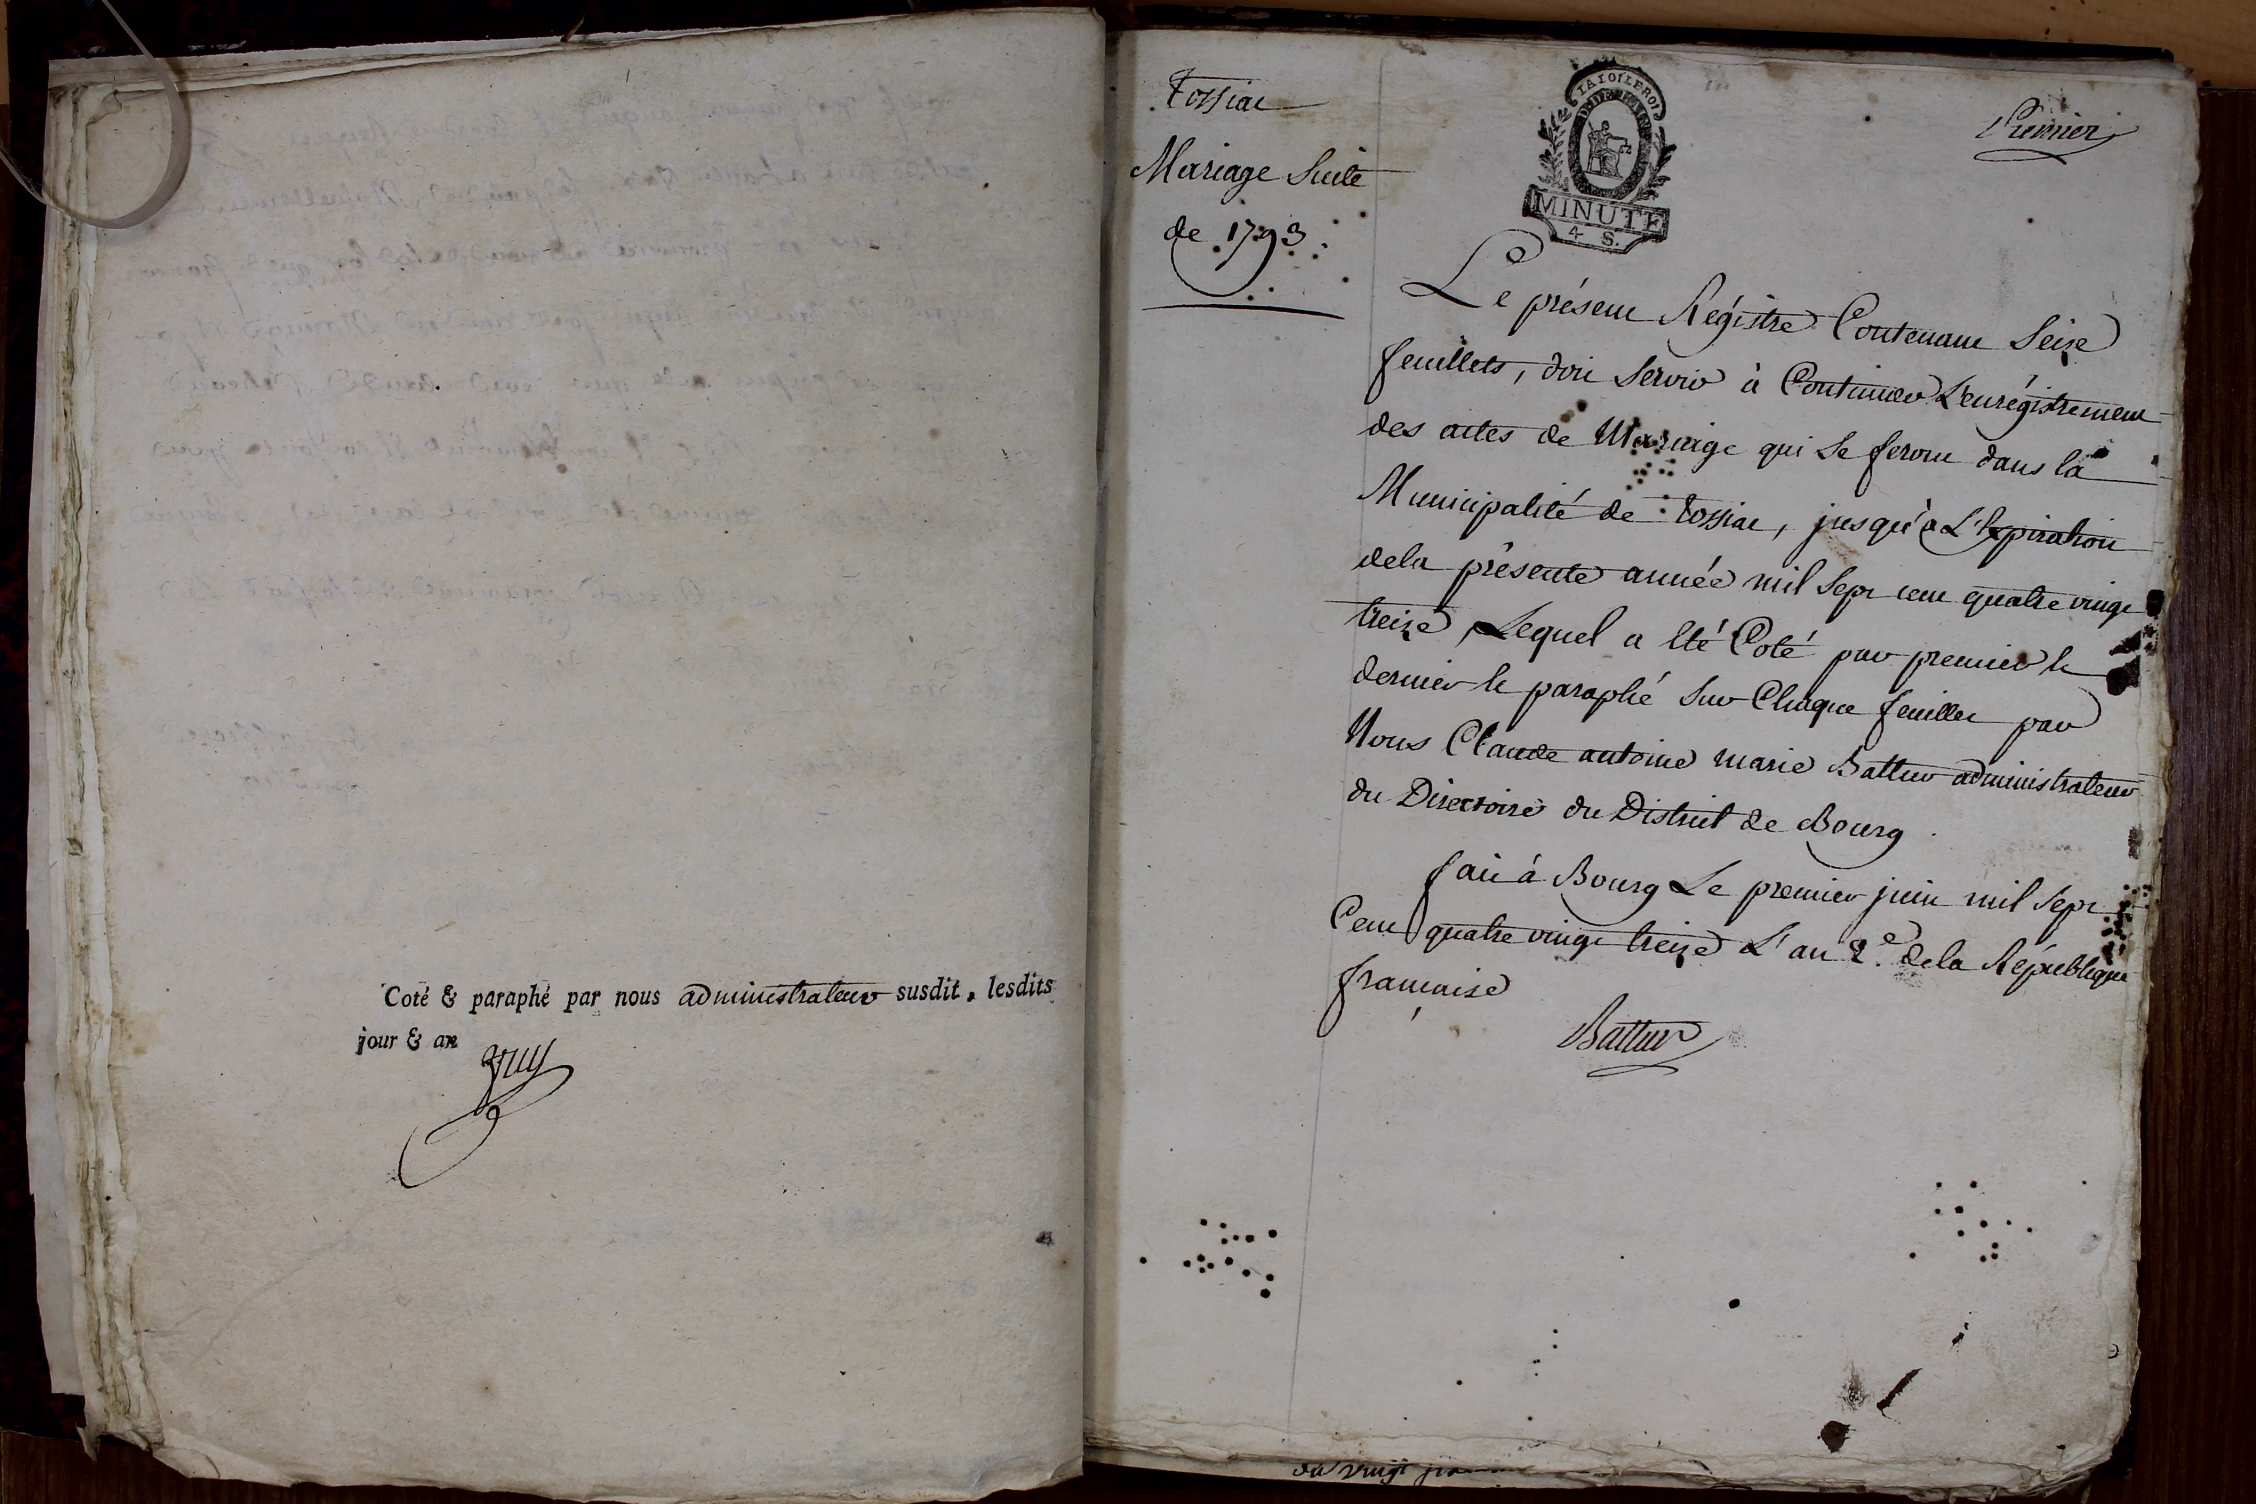 Coté & paraphé par nous administrateur susdit, lesdits
jour & an
Tossiat
Mariage Suite
de 1793
LA LOI LE ROI
MINUTE
4 S.
Premier
Le présent Régistre Contenant Seize
feuillets, doit Servir à Continuer L'enrégistrement
des actes de Mariage qui Se feront dans la
Municipalité de Tossiat, jusqu'à L'Expiration
dela présente année mil Sept cent quatre vingt
treize, Lequel a Eté Coté par premier &
dernier & paraphé Sur Chaque feuillet par
Nous Claude antoine marie Battur administrateur
du Directoire du District de Bourg
fait à Bourg Le premier juin mil Sept
Cent quatre vingt treize L'an 2e. dela République
française
Battur